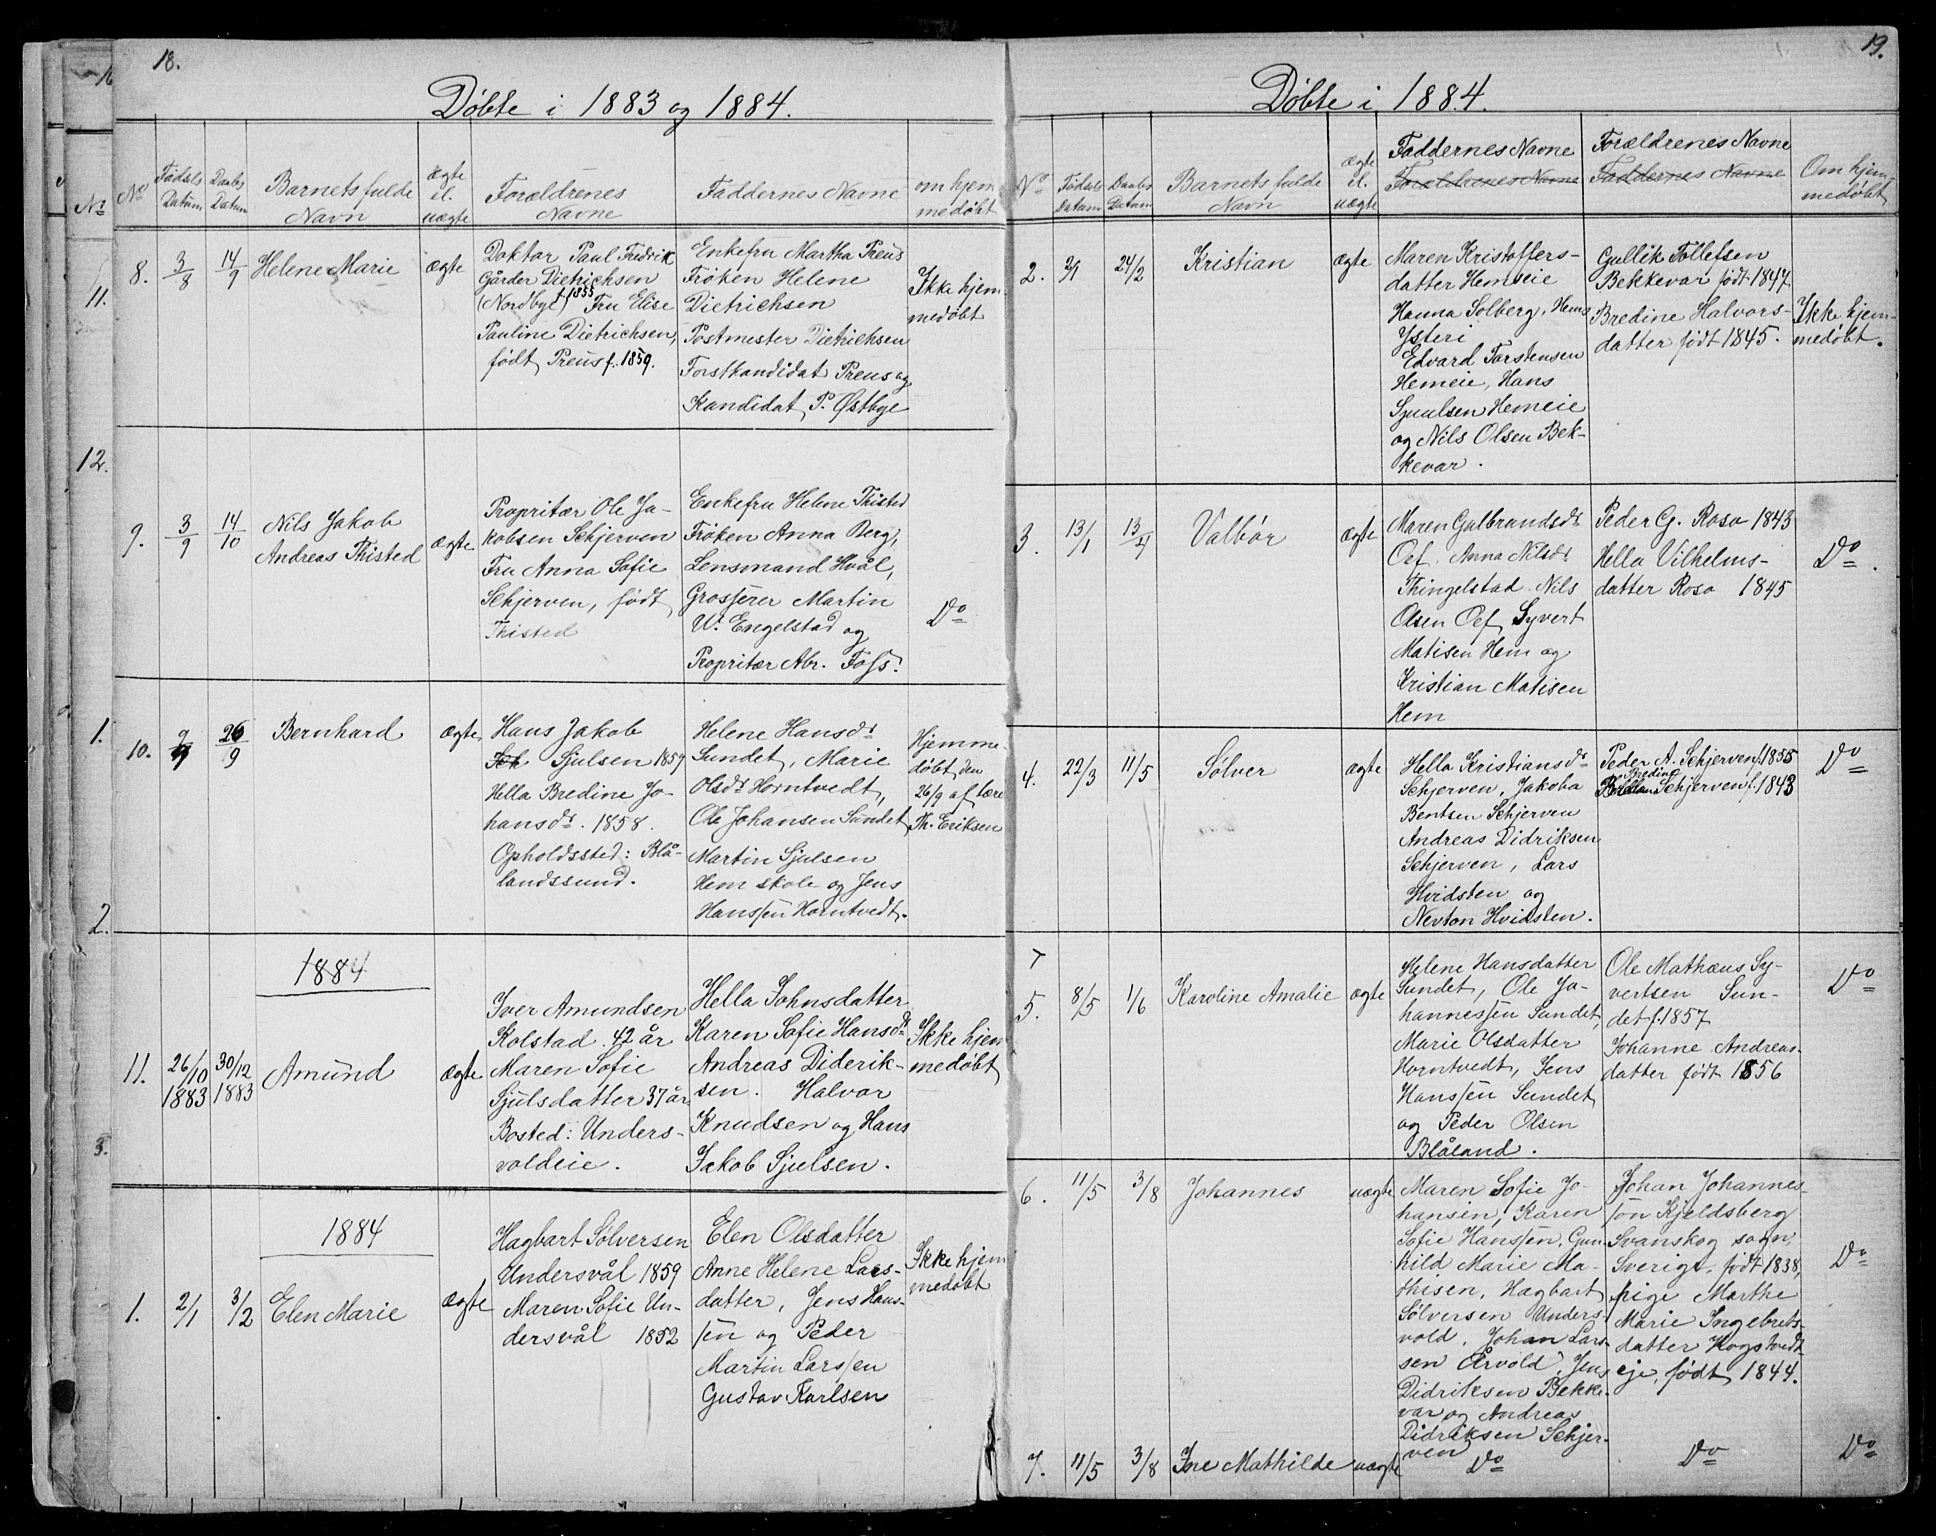 18.
Döbte i 1883 og 1884.
No
Födsels Datum
Daabs Datum
Barnets fulde Navn
ægte el. uægte
Forældrenes Navne
Faddernes Navne
om hjem medöbt
8.
3/8
14/9
Helene Marie
ægte
Doktor Paul Fredrik
Gårder Dietrichsen
(Nordbye) f. 1855 Fru Elise
Pauline Dietrichsen,
födt Preus f. 1859.
Enkefru Martha Preus
Fröken Helene
Dietrichsen
Postmester Dietrichsen
Forstkandidat Preus og
Kandidat P. Østbye
Ikke hjem
medöbt
9.
3/9
14/10
Nils Jakob
Andreas Thisted
ægte
Propritær Ole Ja-
kobsen Schjerven
Fru Anna Sofie
Schjerven, födt
Thisted
Enkefru Helene Thisted
Fröken Anna Berg,
Lensmand Hvål,
Grosserer Martin
W. Engelstad og
Propritær Abr. Foss.
Do
10.
26/9
Bernhard
ægte
Hans Jakob
Sjulsen 1859
Hella Bredine Jo-
hansdr. 1858.
Opholdssted: Blå-
landssund.
Helene Hansdr
Sundet, Marie
Olsdr Horntvedt,
Ole Johansen Sundet
Martin Sjulsen
Hem skole og Jens
Hanssen Horntvedt.
Hjemme
döbt den
26/9 af lære
Th. Eriksen
1884
11.
26/10 1883
30/12 1883
Amund
ægte
Iver Amundsen
Kolstad 42 år
Maren Sofie
Sjulsdatter 37 år
Bosted: Unders-
voldeie.
Hella Johnsdatter
Karen Sofie Hansdr
Andreas Diderik-
sen. Halvor
Knudsen og Hans
Jakob Sjulsen.
Ikke hjem
medöbt
1884
1.
2/1
3/2
Elen Marie
ægte
Hagbart Sölversen
Undersvål 1859
Maren Sofie Un-
dersvål 1852
Elen Olsdatter
Anne Helene Lars-
datter, Jens Hans-
sen og Peder
Martin Larssen
Gustav Karlsen
Ikke hjem
medöbt
No
11.
12.
1.
2.
3.
19.
Döbte i 1884.
No
Födsels Datum
Daabs Datum
Barnets fulde Navn
ægte el. uægte
Faddernes Navne
Forældrenes Navne
Forældrenes Navne
Faddernes Navne
Om hjem-
medöbt
2.
2/1
24/2
Kristian
ægte
Maren Kristoffers-
datter Hemseie
Hanna Solberg, Hems
Ysteri
Edvard Torstensen
Hemeie, Hans
Sjuulsen Hemeie
og Nils Olsen Bek-
kevar.
Gullik Tollefsen
Bekkevar födt 1847.
Bredine Halvors-
datter födt 1845.
Ikke hjem-
medöbt.
3.
13/1
13/4
Valbör
ægte
Maren Gulbrandsdr
Oef. Anna Nilsdr
Thingelstad. Nils
Olsen Oef, Syvert
Matisen Hem og
Kristian Matisen
Hem
Peder G. Roso 1843
Hella Vilhelms-
datter Roso 1845
Do.
4.
22/3
11/5
Sölver
ægte
Hella Kristiansdr
Schjerven, Jakoba
Bentsen Schjerven
Andreas Didriksen
Schjerven, Lars
Hvidsten og
Nevton Hvidsten.
Peder A. Schjerven f. 1855
Bredine
Schjerven f. 1843
Do
5.
8/5
1/6
Karoline Amalie
ægte
Helene Hansdatter
Sundet, Ole Jo-
hannessen Sundet,
Marie Olsdatter
Horntvedt, Jens
Hanssen Sundet
og Peder Olsen
Blåland.
Ole Mathæus Sy-
vertsen Sun-
det f. 1857
Johanne Andreas-
datter födt 1856
Do
6.
11/5
3/8
Johannes
uægte
Maren Sofie Jo-
hansen, Karen
Sofie Hanssen, Gun-
hild Marie Ma-
thisen, Hagbart
Sölversen Unders-
vold, Johan Lars-
sen Årvold, Jens
Didriksen Bekke-
var og Andreas
Didriksen Schjer-
ven
Johan Johannes-
sön Kjeldsberg
Svanskog sogn,
Sverige, födt 1838,
pige Marthe
Marie Ingebrets-
datter Hogstvedt-
eje, födt 1844.
Do
7.
11/5
3/8
Ine Mathilde
uægte
Do
Do
Do